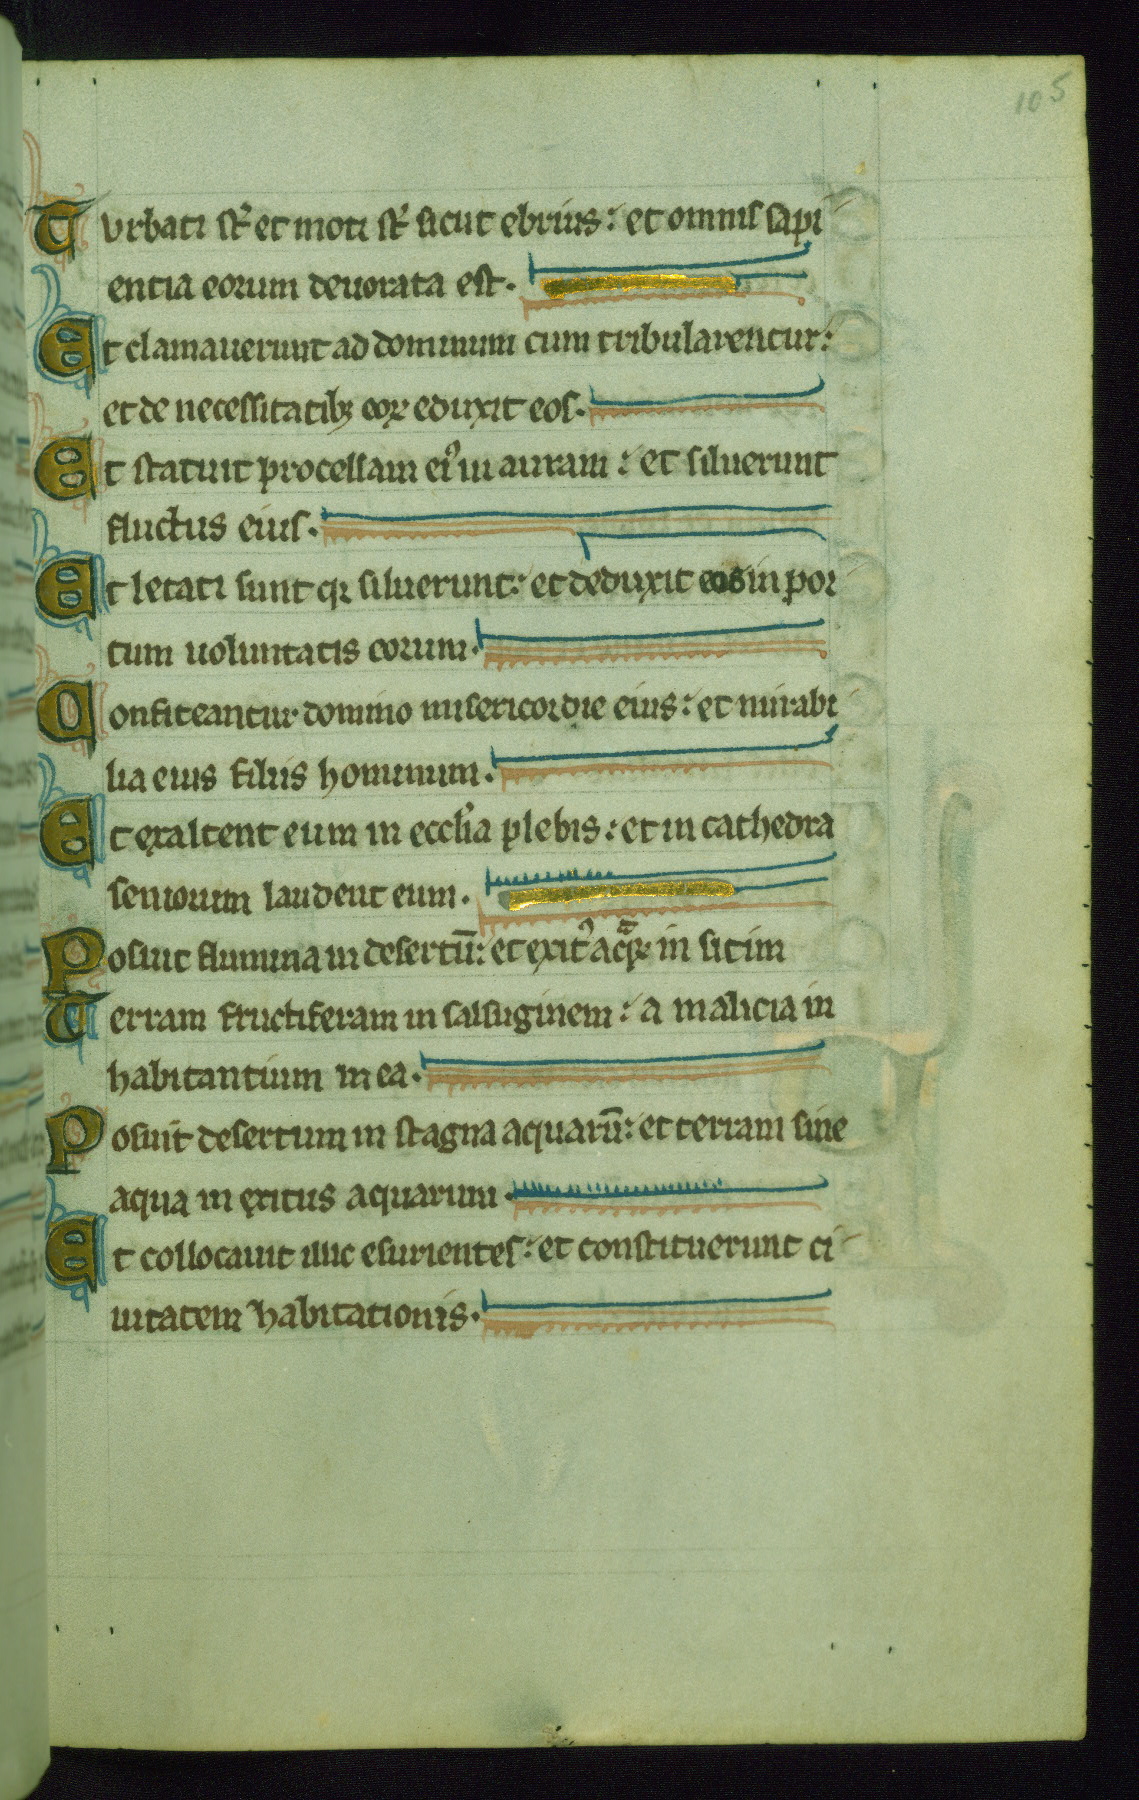 105
Turbati st̃ et moti st̃ sicut ebrius: et omnis sapi
entia eorum deuorata est.
Et clamauerunt ad dominum cum tribularentur:
et de necessitatibꝫ eoꝝ eduxit eos.
Et statuit procellam eiꝰ in auram: et siluerunt
fluctus eius.
Et letati sunt qꝛ siluerunt: et deduxit eos in por
tum uoluntatis eorum.
Confiteantur domino misericordie eius: et mirabi
lia eius filiis hominum.
Et exaltent eum in eccl̃ia plebis: et in cathedra
seniorum laudent eum.
Posuit flumina in desertū: et exitꝰ aq̃ꝝ in sitim
Terram fructiferam in salsuginem: a malicia in
habitantium in ea.
Posuit desertum in stagna aquarū: et terram sine
aqua in exitus aquarum.
Et collocauit illic esurientes: et constituerunt ci
uitatem habitationis.